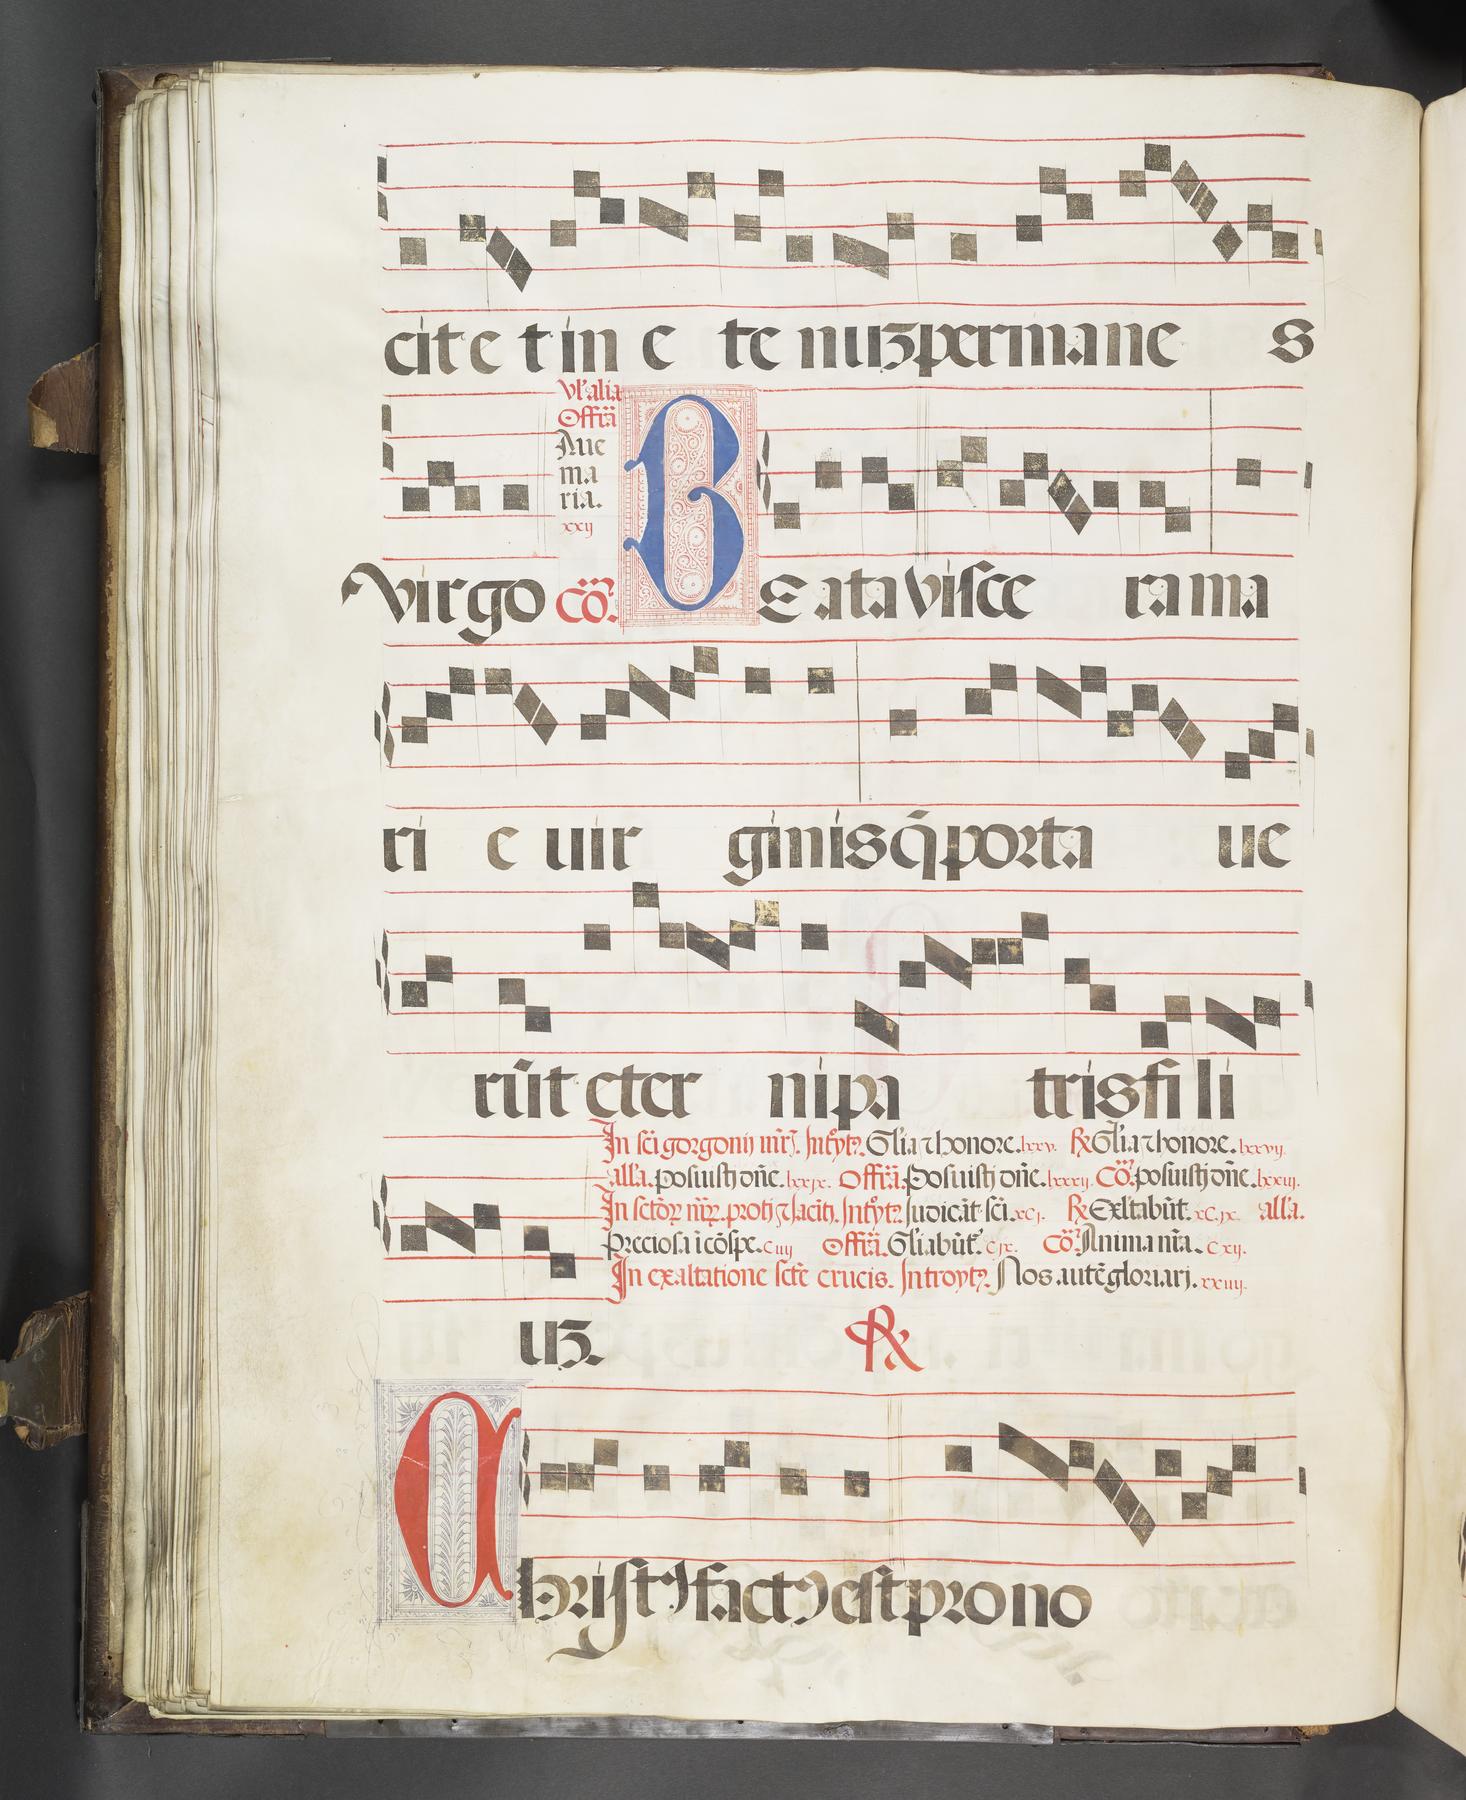 cite t in e te nuʒ permane s
Vl' alia
Offr̄a
Aue
ma
ria.
xxij
virgo Cō. BEata visce rama
ri e uir ginis q̄ porta ue
rūt eter ni pa tris fi li
In sc̄i gorgonij mr̄. Introyt9. Gl'ia ⁊ honore. lxxv. ℟ Gl'ia ⁊ honore. lxxvij.
all'a. posuisti dn̄e. lxxix. Offr̄a. Posuisti dn̄e. lxxxij. Cō. posuisti dn̄e. lxxiij.
In sctōꝝ mr̄ꝝ. proti ⁊ Jacīti. Introyt9. Judicāt sc̄i. xcj. ℟ Exl'tabūt. xc.ix. all'a.
Preciosa ī cōspe. ciiij Offr̄a. Gl'iabūt. cix. Cō. Anima nr̄a. cxij.
In exaltatione sctē crucis. Introyt9. Nos autē gloriari. xxiiij.
uʒ. ℟
Christ9 fact9 est pro no